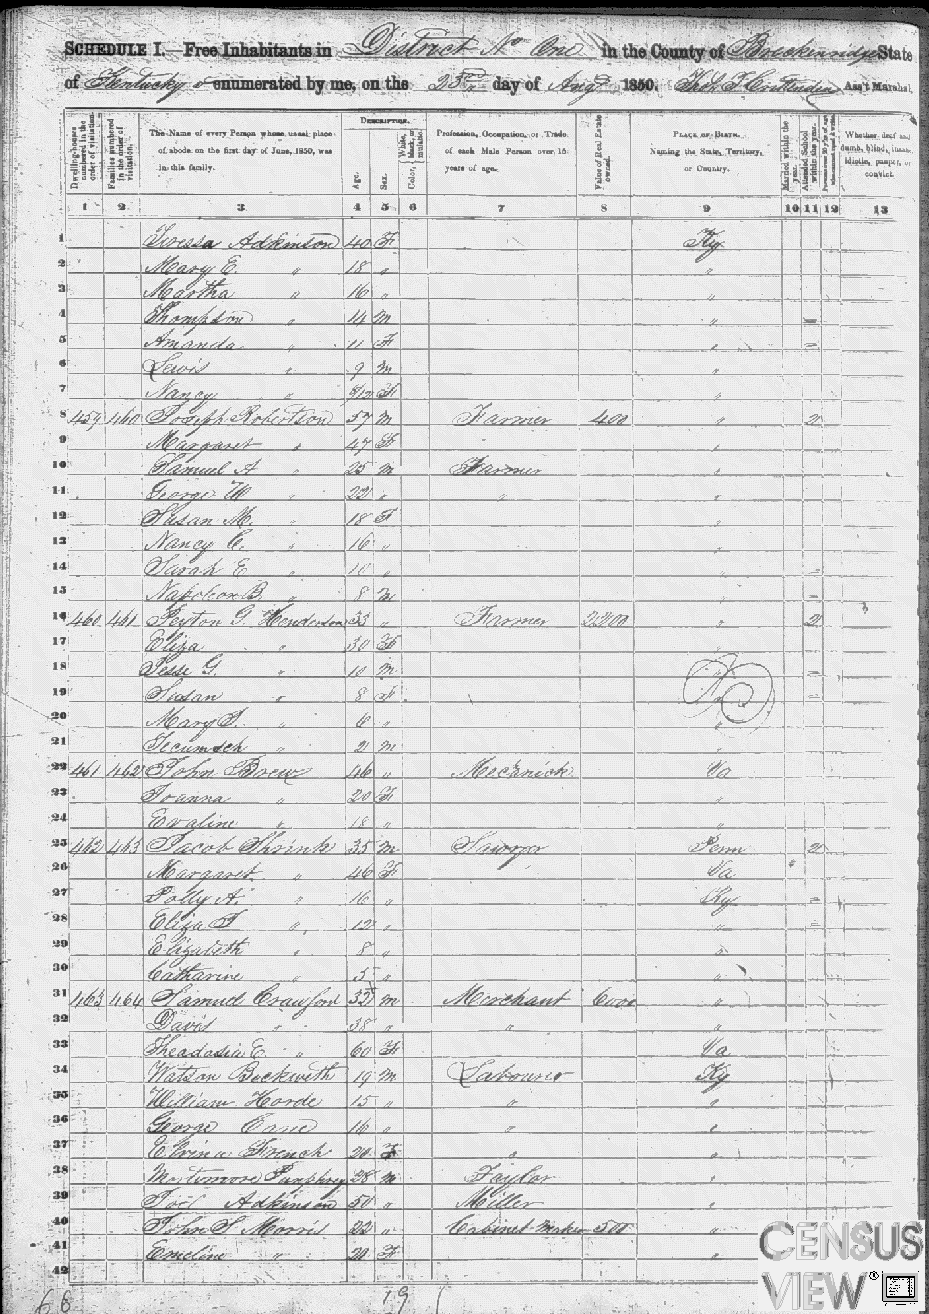 SCHEDULE I.—Free Inhabitants in District No One in the County of Breckenridge State
of Kentucky enumerated by me, on the 23rd day of Augs 1850. Thos J. Crittenden Ass't Marshal.
Dwelling-houses numbered in the order of visitation.
Families numbered in the order of visitation.
The Name of every Person whose usual place of abode on the first day of June, 1850, was in this family.
DESCRIPTION.
Age.
Sex.
Color, White, black, or mulatto.
Profession, Occupation, or Trade of each Male Person over 15 years of age.
Value of Real Estate owned.
PLACE OF BIRTH. Naming the State, Territory, or Country.
Married within the year.
Attended School within the year.
Persons over 20 y'rs of age who cannot read & write.
Whether deaf and dumb, blind, insane, idiotic, pauper, or convict.
1 2 3 4 5 6 7 8 9 10 11 12 13
1 Adkinson 40 F Ky
2 Mary E. " 18 " "
3 Martha " 16 " "
4 Thompson " 14 m " =
5 Amanda " 11 F " =
6 Lewis " 9 m "
7 Nancy " F "
8 459 460 Joseph Robertson 57 m Farmer 400 " 2
9 Margaret " 47 F "
10 Samuel A " 25 m Farmer "
11 George W " 22 " " "
12 Susan M. " 18 F "
13 Nancy C. " 16 " "
14 Sarah E " 10 " " =
15 Napoleon B. " 8 m " =
16 460 461 Peyton G. Henderson 33 " Farmer 2200 " 2
17 Eliza " 30 F "
18 Jesse G. " 10 m " =
19 Susan " 8 F " =
20 Mary J. " 6 " "
21 Tecumseh " 2 m "
22 461 462 John Brew 46 " Mechanick Va
23 Joanna " 20 F "
24 Evaline " 18 " "
25 462 463 Jacob Shrink 35 m Sawyer Penn 2
26 Margaret " 46 F Va
27 Polly A. " 16 " Ky =
28 Eliza J " 12 " " =
29 Elizabeth " 8 " "
30 Catharine " 5 " "
31 463 464 Samuel Crawford 35 m Merchant 6000 "
32 Davis " 38 " " "
33 Theadosia E. " 60 F Va
34 Watson Beckwith 19 m Labourer Ky
35 William Horde 15 " " "
36 George 16 " " "
37 French 20 F " "
38 Mortimore Pumphrey 28 m Taylor "
39 Joel Adkinson 50 " Miller "
40 John S Morris 22 " Cabinet Maker 500 "
41 Emeline " 20 F "
42
68
19
CENSUS
VIEW®